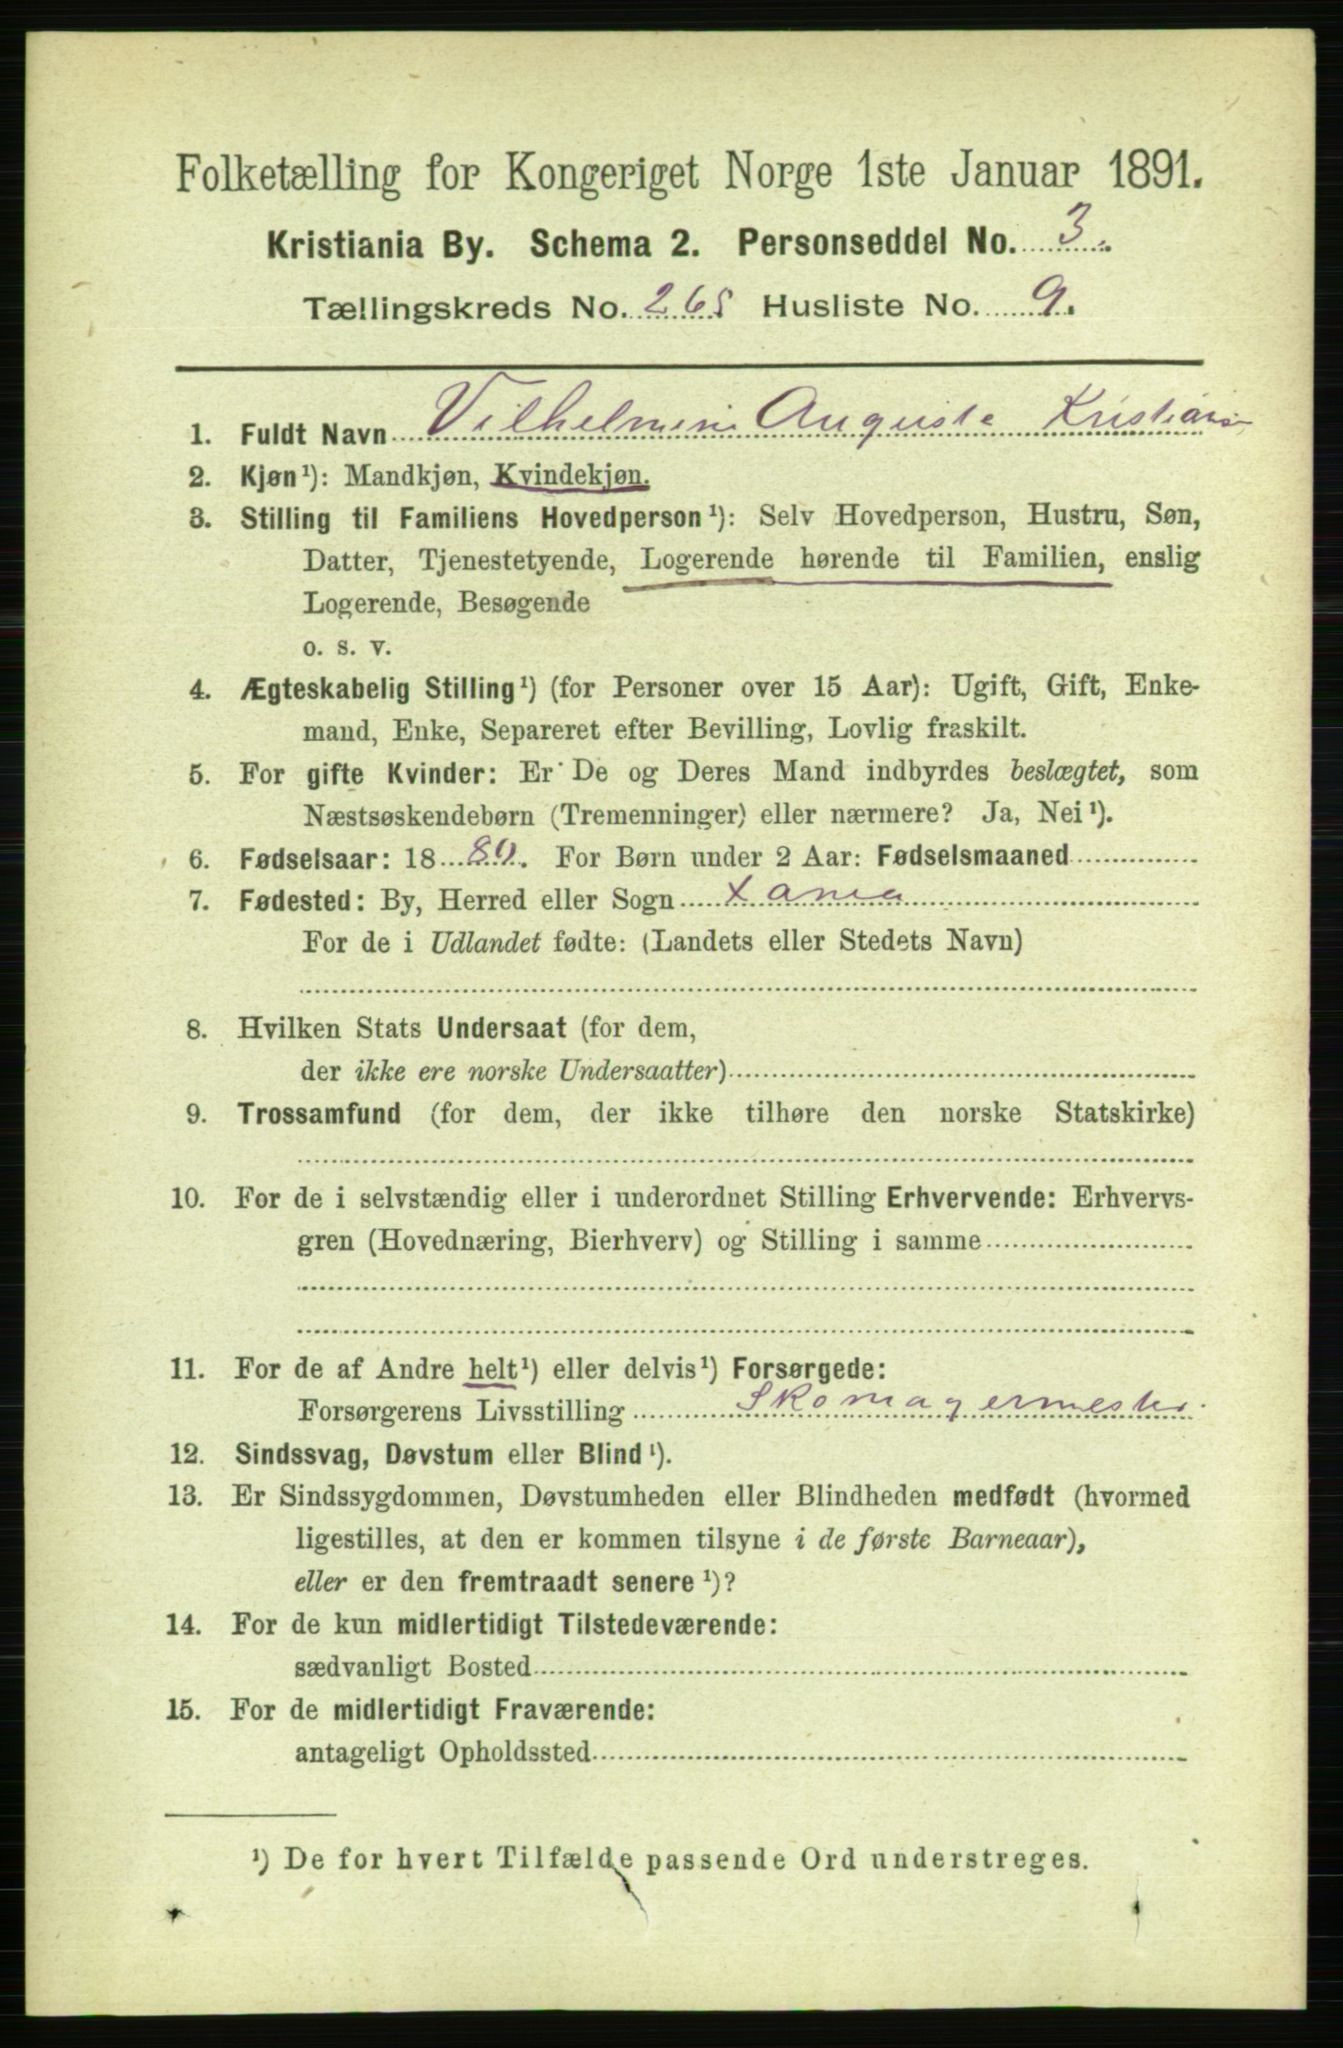 Folketælling for Kongeriget Norge 1ste Januar 1891.
Kristiania By. Schema 2. Personseddel No. 3.
Tællingskreds No. 265 Husliste No. 9.
1. Fuldt Navn Vilhelmine Auguste
2. Kjøn¹): Mandkjøn, Kvindekjøn.
3. Stilling til Familiens Hovedperson¹): Selv Hovedperson, Hustru, Søn,
Datter, Tjenestetyende, Logerende hørende til Familien, enslig
Logerende, Besøgende
o. s. v.
4. Ægteskabelig Stilling¹) (for Personer over 15 Aar): Ugift, Gift, Enke-
mand, Enke, Separeret efter Bevilling, Lovlig fraskilt.
5. For gifte Kvinder: Er De og Deres Mand indbyrdes beslægtet, som
Næstsøskendebørn (Tremenninger) eller nærmere? Ja, Nei¹).
6. Fødselsaar: 18 89. For Børn under 2 Aar: Fødselsmaaned
7. Fødested: By, Herred eller Sogn Xania
For de i Udlandet fødte: (Landets eller Stedets Navn)
8. Hvilken Stats Undersaat (for dem,
der ikke ere norske Undersaatter)
9. Trossamfund (for dem, der ikke tilhøre den norske Statskirke)
10. For de i selvstændig eller i underordnet Stilling Erhvervende: Erhvervs-
gren (Hovednæring, Bierhverv) og Stilling i samme
11. For de af Andre helt¹) eller delvis¹) Forsørgede:
Forsørgerens Livsstilling Skomagermester
12. Sindssvag, Døvstum eller Blind¹).
13. Er Sindssygdommen, Døvstumheden eller Blindheden medfødt (hvormed
ligestilles, at den er kommen tilsyne i de første Barneaar),
eller er den fremtraadt senere¹)?
14. For de kun midlertidigt Tilstedeværende:
sædvanligt Bosted
15. For de midlertidigt Fraværende:
antageligt Opholdssted
¹) De for hvert Tilfælde passende Ord understreges.